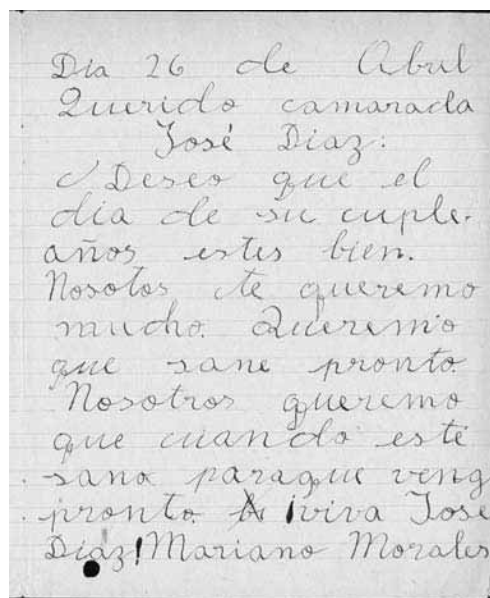 Dia 26 de Abril
Querido camarada
José Diaz:
Deseo que el
dia de su cuple-
años estes bien.
Nosotos te queremo
mucho. Queremo
que sane pronto.
Nosotros queremo
que cuando esté
sano paraque veng
pronto. ¡viva José
Díaz! Mariano Morales